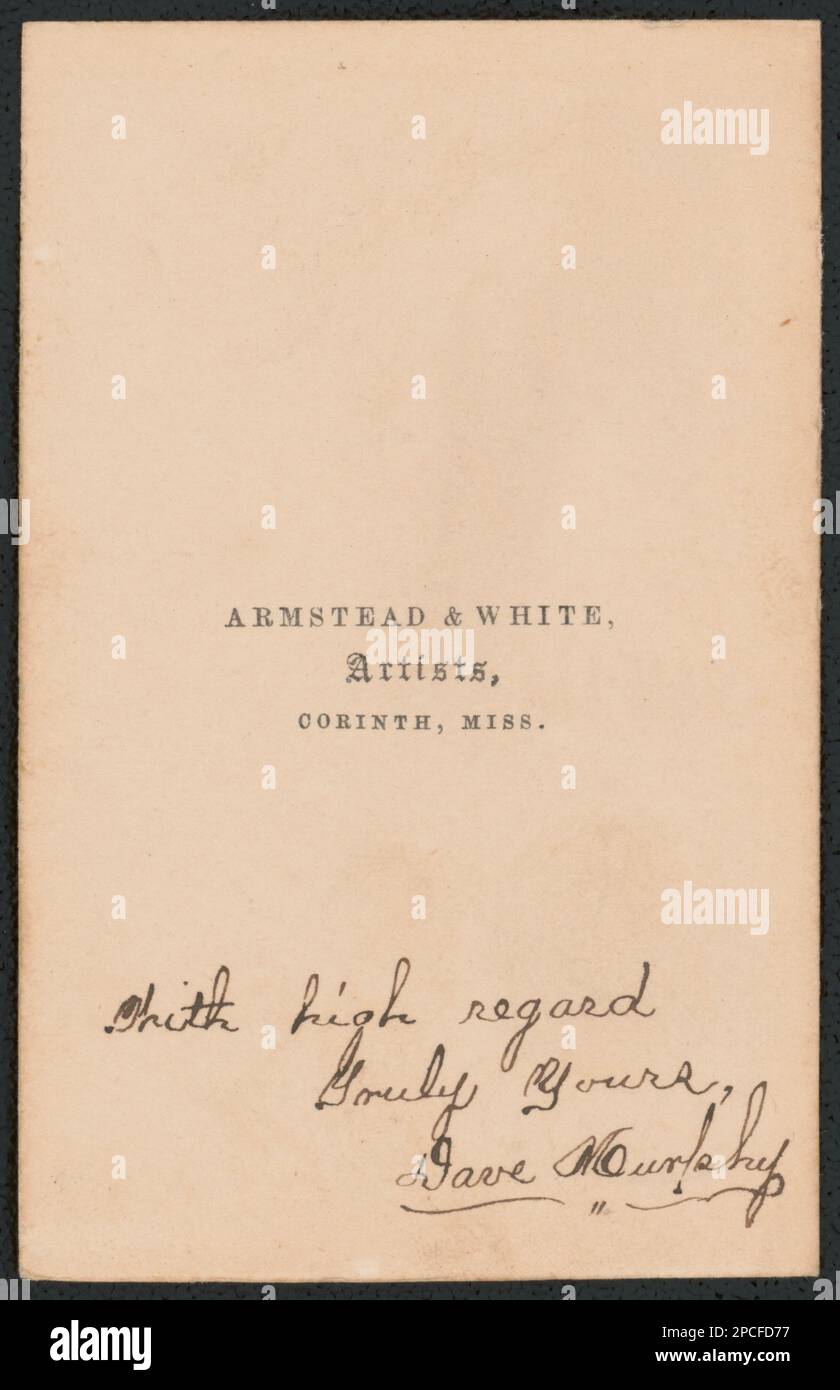 ARMSTEAD & WHITE,
Artists,
CORINTH, MISS.
With high regard
Truly Yours,
Dave Murphy
alamy
Image ID: 2PCFD77
www.alamy.com